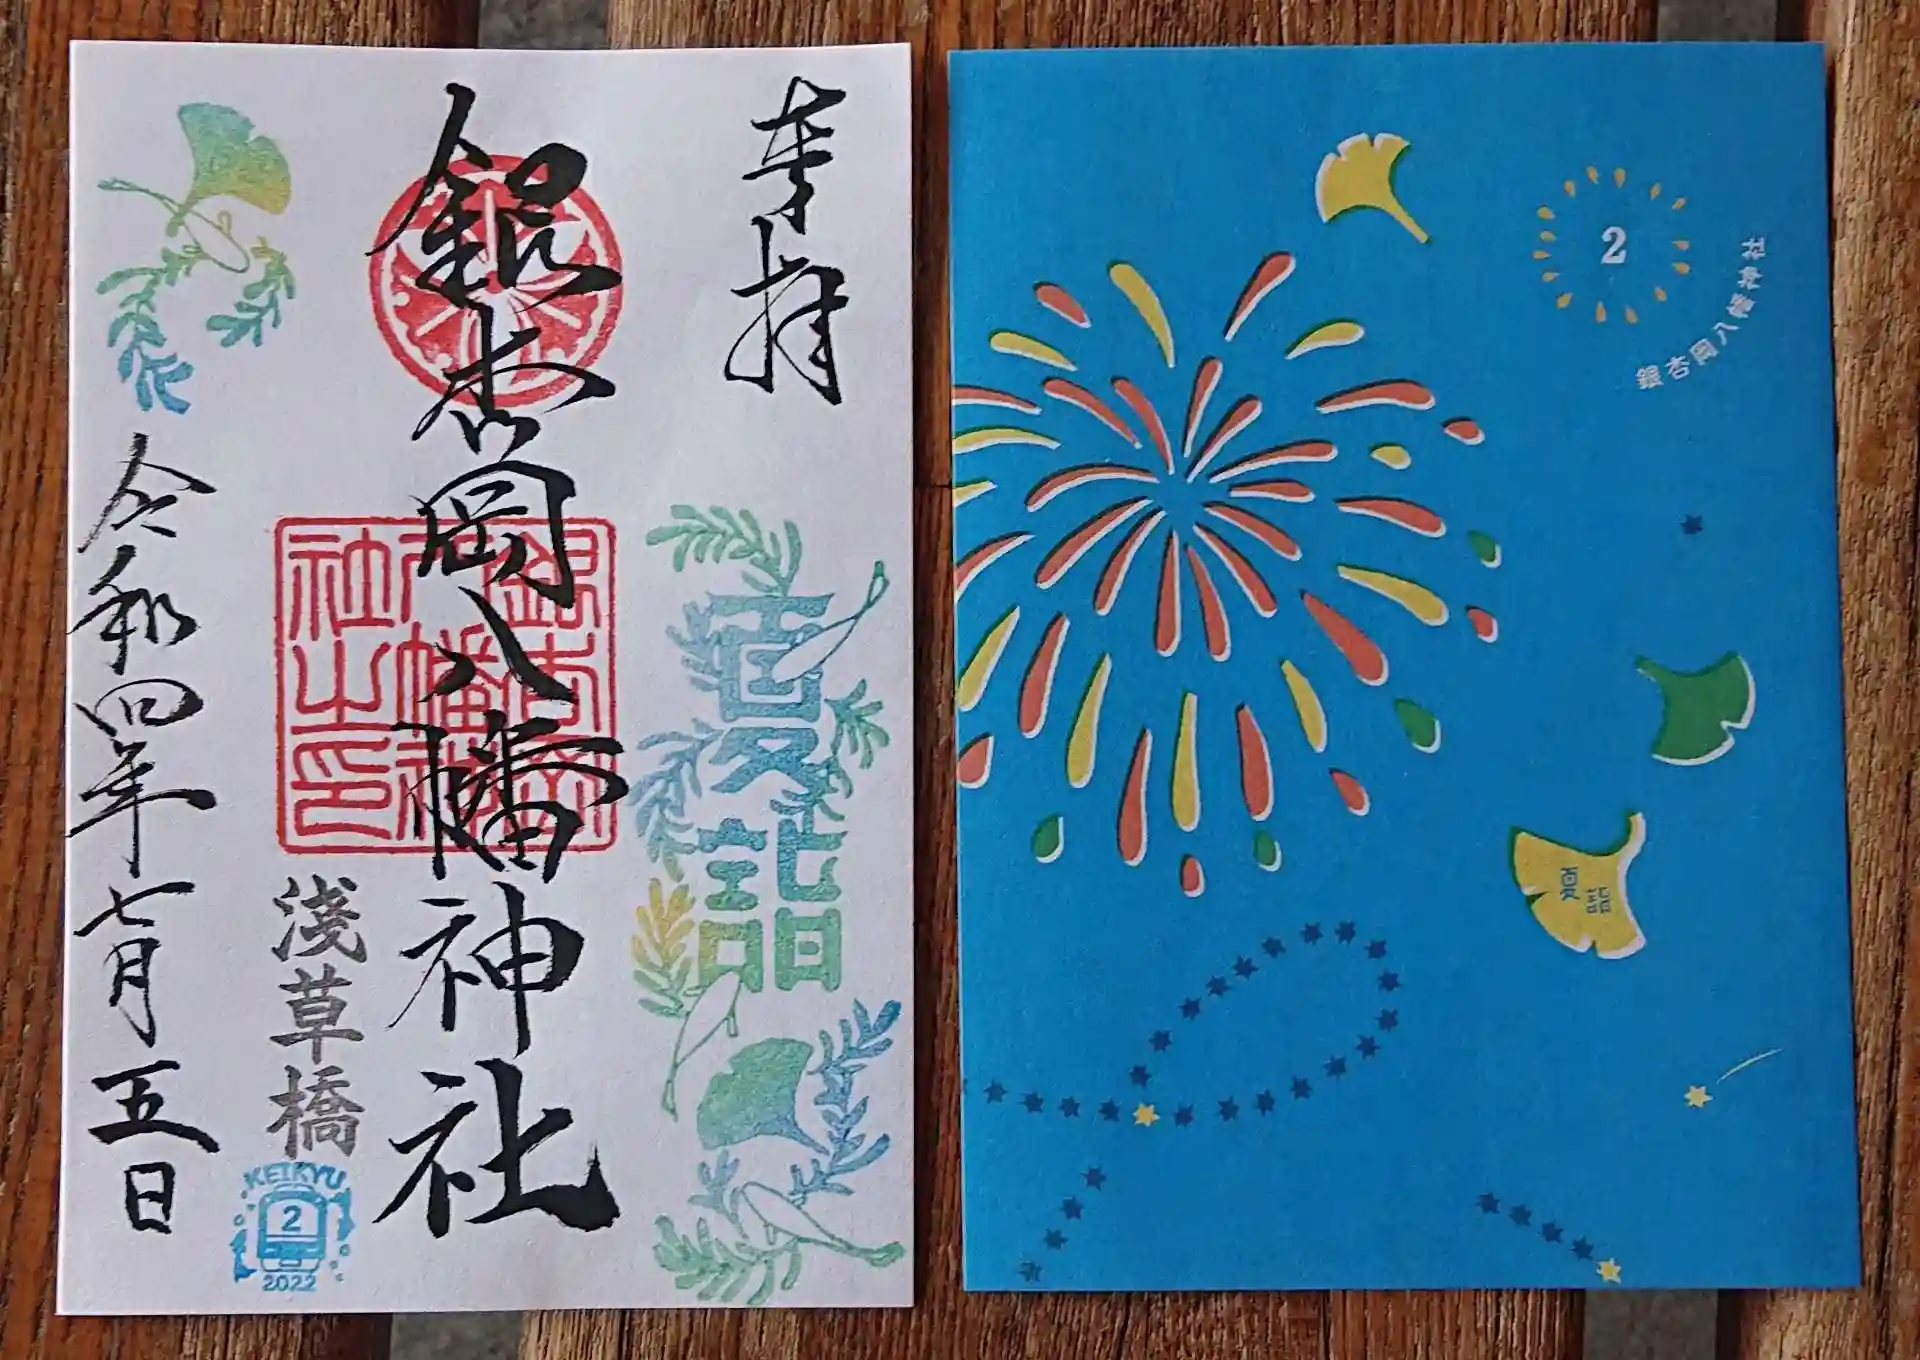 奉拝
夏詣
銀杏岡八幡神社
銀杏岡八幡神社之印
浅草橋
KEIKYU
2
2022
令和四年七月五日
2
銀杏岡八幡神社
夏詣